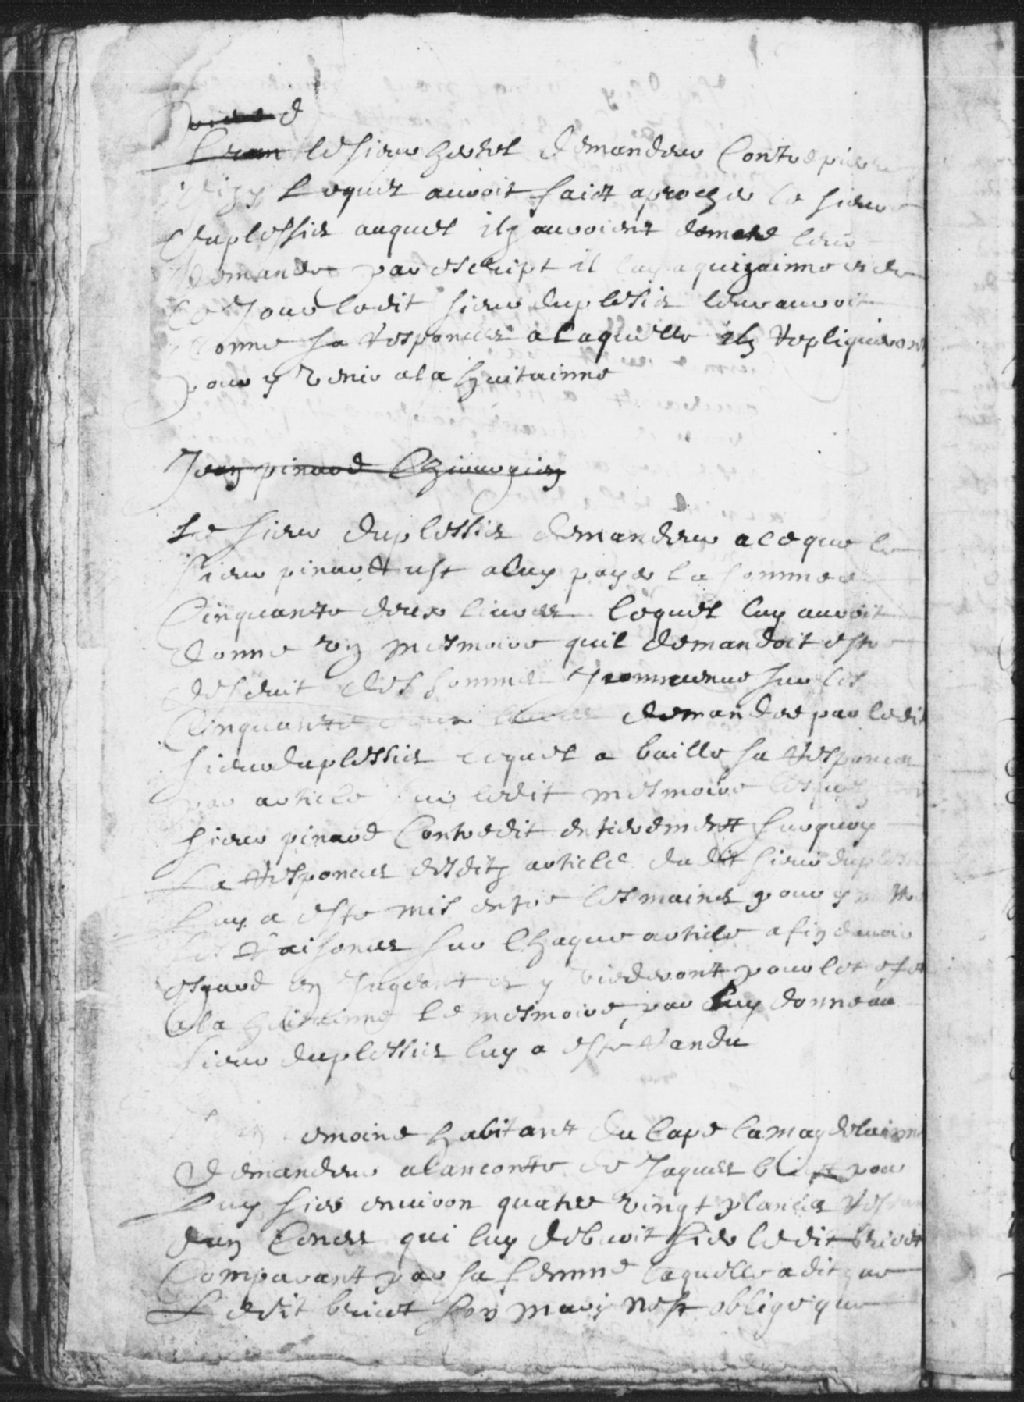 le sieur hertel demandeur Contre pierre
Lequel avoit faict aprocher le sieur
duplessis auquel ilz auroient donné leur
demande par escript il luy a quizainne et de
Ce Jour ledit sieur duplesis leur avoit
donne sa responces a laquelle ilz repliqueront
pour y venir a la huitainne
Jean pinard Chirurgien
Le sieur duplessis demandeur a ce que le
sieur pinard ust a luy payer la somme de
Cinquante deux livres lequel luy avoit
donne un mesmoire quil demandoit estre
desduit des sommes y contenue sur les
Cinquante deux livres demandee par ledit
sieur duplessis lequel a baille sa responces
par article sur ledit mesmoire
sieur pinard Contredit entierement surquoy
La responces desditz article dudit sieur duplessis
Luy a este mis entre les mains pour y mettre
ses raisones sur Chaque article afin davoir
esgard en Jugeant et y viederont pour les
a la huitainne Le mesmoire par luy donne au
sieur duplessis luy a este randu
Lemoine habitant du Cape la magdelainne
demandeur a lancontre de Jaques
Luy sier environ quatre vingt planches
dun Costes qui luy debvoit sier ledit bricet
Comparant par sa femme laquelle a dit que
Ledit bricet son mary nest oblige que